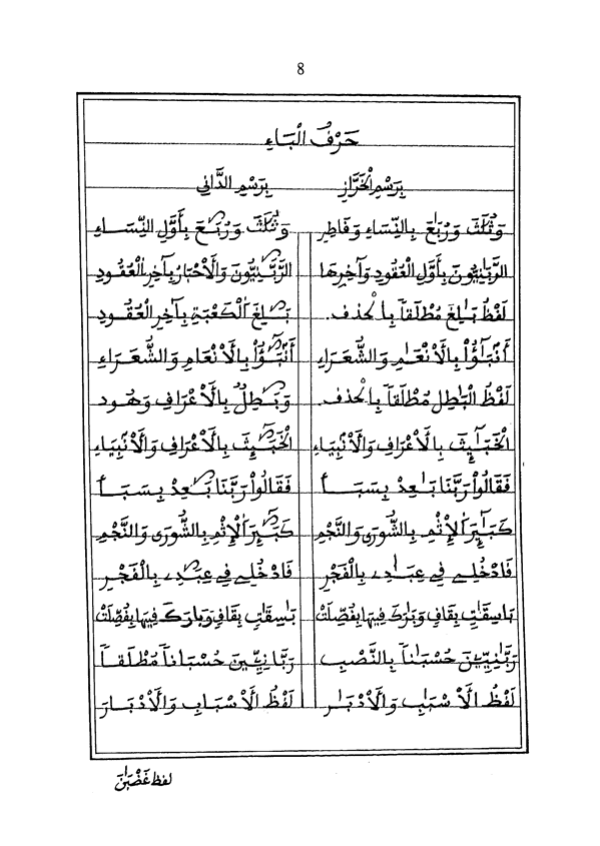 8
حَرْفُ الْبَاءِ
بِرَسْمِ الْخَرَّازِ    بِرَسْمِ الدَّانِي
وَثُلَٰثَ وَرُبَٰعَ بِالنِّسَاءِ وَفَاطِرِ    وَثُلَٰثَ وَرُبَٰعَ بِأَوَّلِ النِّسَاءِ
الرَّبَّٰنِيُّونَ بِأَوَّلِ الْعُقُودِ وَآخِرِهَا    الرَّبَّٰنِيُّونَ وَالْأَحْبَارُ بِآخِرِ الْعُقُودِ
لَفْظُ بَٰلِغَ مُطْلَقاً بِالْحذف.    بَٰلِغَ الْكَعْبَةِ بِآخِرِ الْعُقُودِ
أَنۢبَٰٓؤُاْ بِالْأَنْعَٰمِ وَالشُّعَرَاءِ    أَنۢبَٰٓؤُاْ بِالْأَنْعَامِ وَالشُّعَرَاءِ
لَفْظُ الْبَٰطِلِ مُطْلَقاً بِالْحذف.    وَبَٰطِلٌ بِالْأَعْرَافِ وَهُود
الْخَبَٰٓئِثَ بِالْأَعْرَافِ وَالْأَنْبِيَاءِ    الْخَبَٰٓئِثَ بِالْأَعْرَافِ وَالْأَنْبِيَاءِ
فَقَالُواْ رَبَّنَا بَٰعِدْ بِسَبَأ    فَقَالُواْ رَبَّنَا بَٰعِدْ بِسَبَأ
كَبَٰٓئِرَ الْإِثْمِ بِالشُّورَى وَالنَّجْمِ    كَبَٰٓئِرَ الْإِثْمِ بِالشُّورَى وَالنَّجْمِ
فَادْخُلِے فِي عِبَٰدِے بِالْفَجْرِ    فَادْخُلِے فِي عِبَٰدِے بِالْفَجْرِ
بَاسِقَٰتٍ بِقَافٍ وَبَٰرَكَ فِيهَا بِفُصِّلَتْ    بَٰسِقَٰتٍ بِقَافٍ وَبَارَكَ فِيهَا بِفُصِّلَتْ
رَبَّٰنِيِّينَ حُسْبَٰناً بِالنَّصْبِ    رَبَّانِيِّينَ حُسْبَاناً مُطْلَقاً
لَفْظُ الْأَسْبَٰبِ وَالْأَدْبَٰرِ    لَفْظُ الْأَسْبَابِ وَالْأَدْبَارَ
لفظ غَضْبَٰنَ